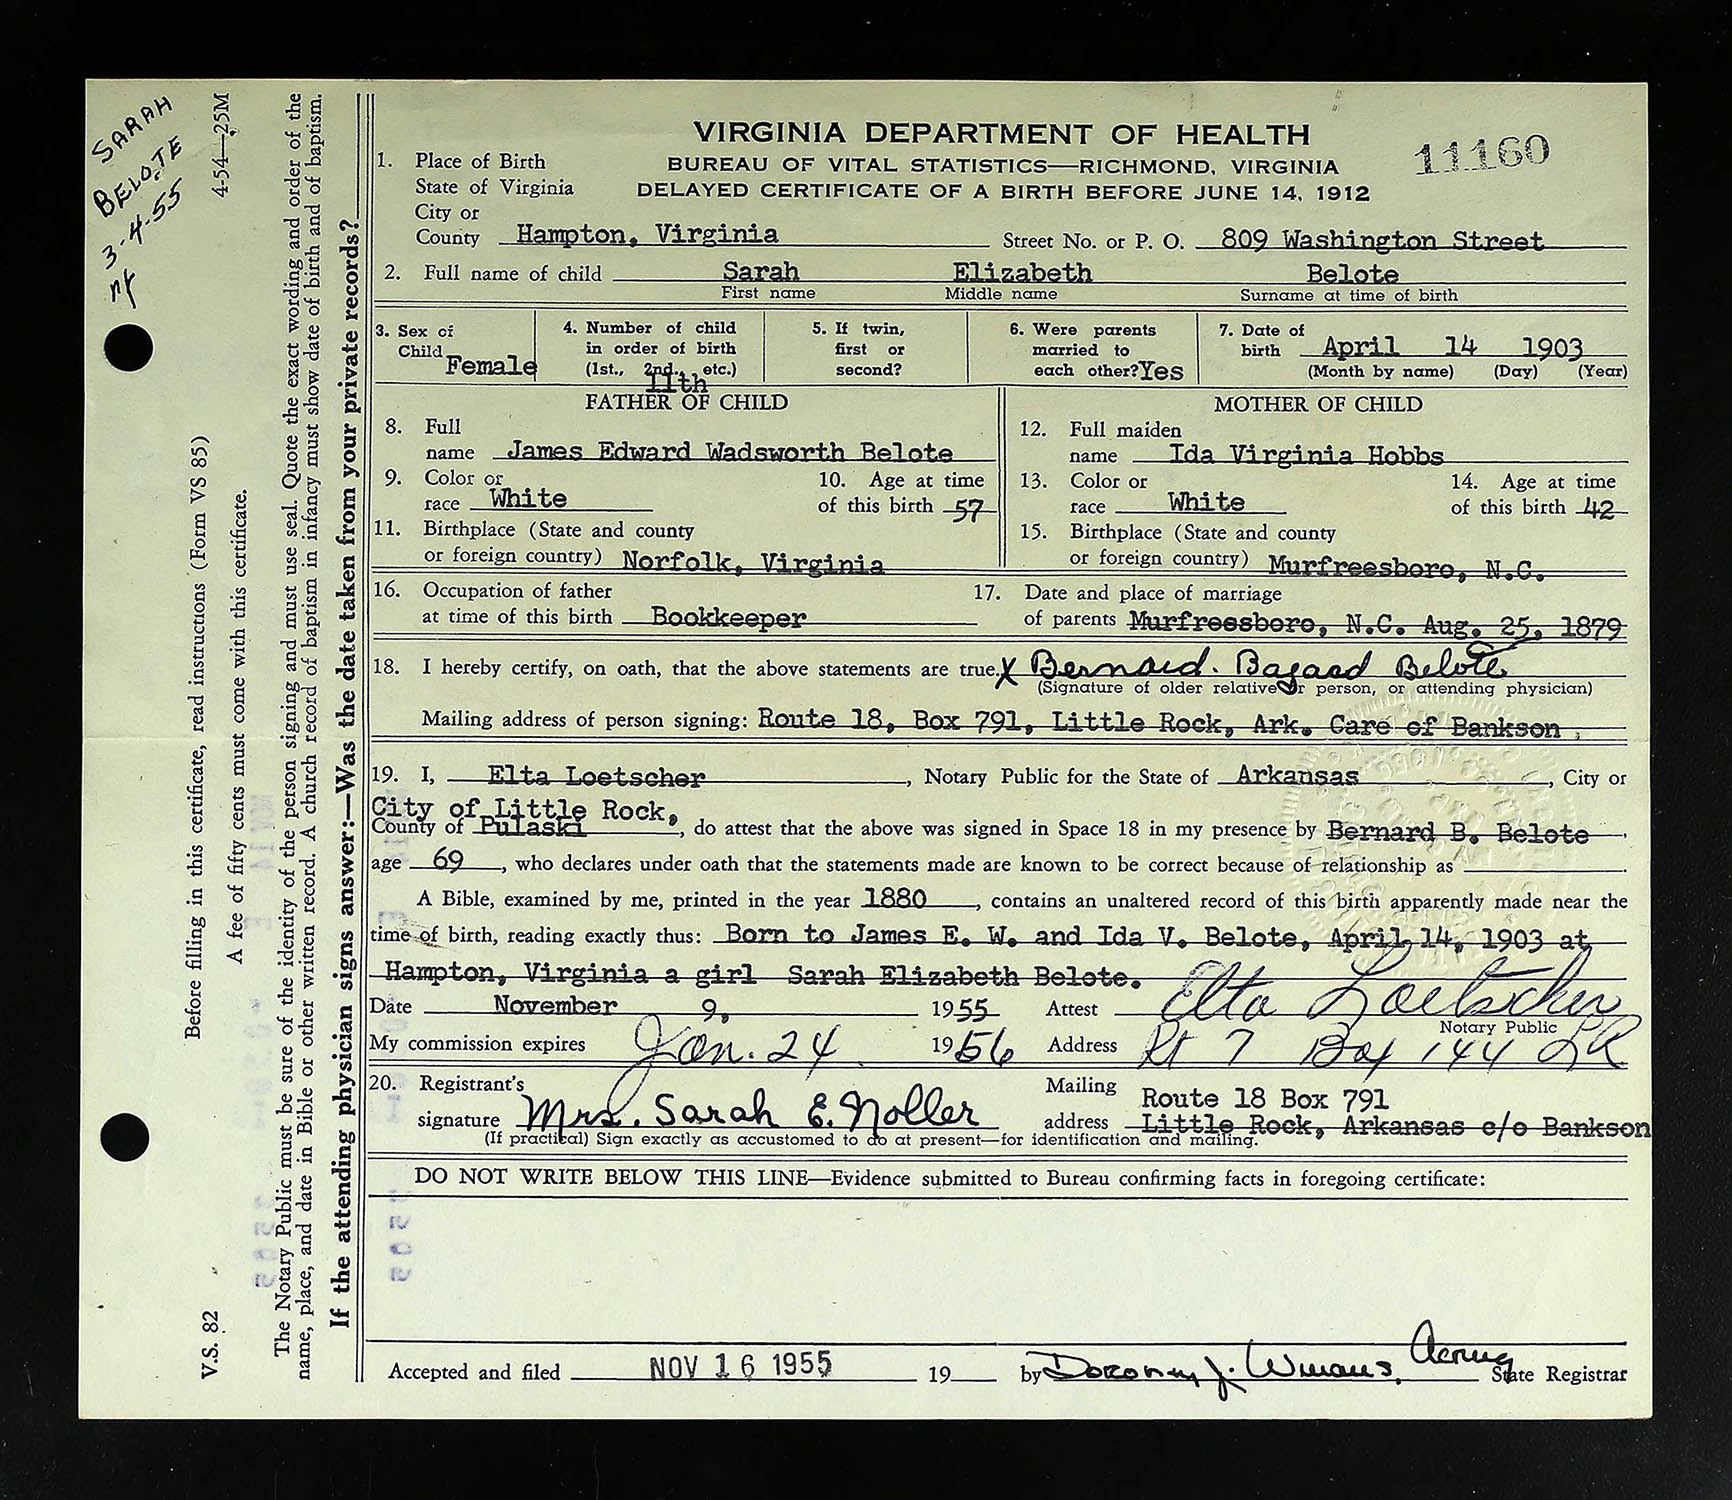 SARAH
BELOTE
3-4-55
4-54—25M
VIRGINIA DEPARTMENT OF HEALTH
BUREAU OF VITAL STATISTICS—RICHMOND, VIRGINIA
DELAYED CERTIFICATE OF A BIRTH BEFORE JUNE 14, 1912
11160
1. Place of Birth
State of Virginia
City or
County Hampton, Virginia Street No. or P. O. 809 Washington Street
2. Full name of child Sarah Elizabeth Belote
First name Middle name Surname at time of birth
3. Sex of Child Female
4. Number of child in order of birth (1st., 2nd., etc.) 11th
5. If twin, first or second?
6. Were parents married to each other? Yes
7. Date of birth April 14 1903
(Month by name) (Day) (Year)
FATHER OF CHILD
8. Full
name James Edward Wadsworth Belote
9. Color or race White
10. Age at time of this birth 57
11. Birthplace (State and county
or foreign country) Norfolk, Virginia
MOTHER OF CHILD
12. Full maiden
name Ida Virginia Hobbs
13. Color or race White
14. Age at time of this birth 42
15. Birthplace (State and county
or foreign country) Murfreesboro, N.C.
16. Occupation of father
at time of this birth Bookkeeper
17. Date and place of marriage
of parents Murfreesboro, N.C. Aug. 25, 1879
18. I hereby certify, on oath, that the above statements are true, X Bernard. Bagaad Belote
(Signature of older relative or person, or attending physician)
Mailing address of person signing: Route 18, Box 791, Little Rock, Ark. Care of Bankson
19. I, Elta Loetscher, Notary Public for the State of Arkansas, City or
City of Little Rock,
County of Pulaski, do attest that the above was signed in Space 18 in my presence by Bernard B. Belote
age 69, who declares under oath that the statements made are known to be correct because of relationship as
A Bible, examined by me, printed in the year 1880, contains an unaltered record of this birth apparently made near the
time of birth, reading exactly thus: Born to James E. W. and Ida V. Belote, April 14, 1903 at
Hampton, Virginia a girl Sarah Elizabeth Belote.
Date November 9, 1955 Attest Elta Loetscher
Notary Public
My commission expires Jan. 24 1956 Address Rt 7 Box 144 LR
20. Registrant's
signature Mrs. Sarah E. Noller
(If practical) Sign exactly as accustomed to do at present—for identification and mailing.
Mailing Route 18 Box 791
address Little Rock, Arkansas c/o Bankson
DO NOT WRITE BELOW THIS LINE—Evidence submitted to Bureau confirming facts in foregoing certificate:
Accepted and filed NOV 16 1955 19 by Dorothy J. Winans, Acting State Registrar
V.S. 82
Before filling in this certificate, read instructions (Form VS 85)
A fee of fifty cents must come with this certificate.
The Notary Public must be sure of the identity of the person signing and must use seal. Quote the exact wording and order of the
name, place, and date in Bible or other written record. A church record of baptism in infancy must show date of birth and of baptism.
If the attending physician signs answer:—Was the date taken from your private records?